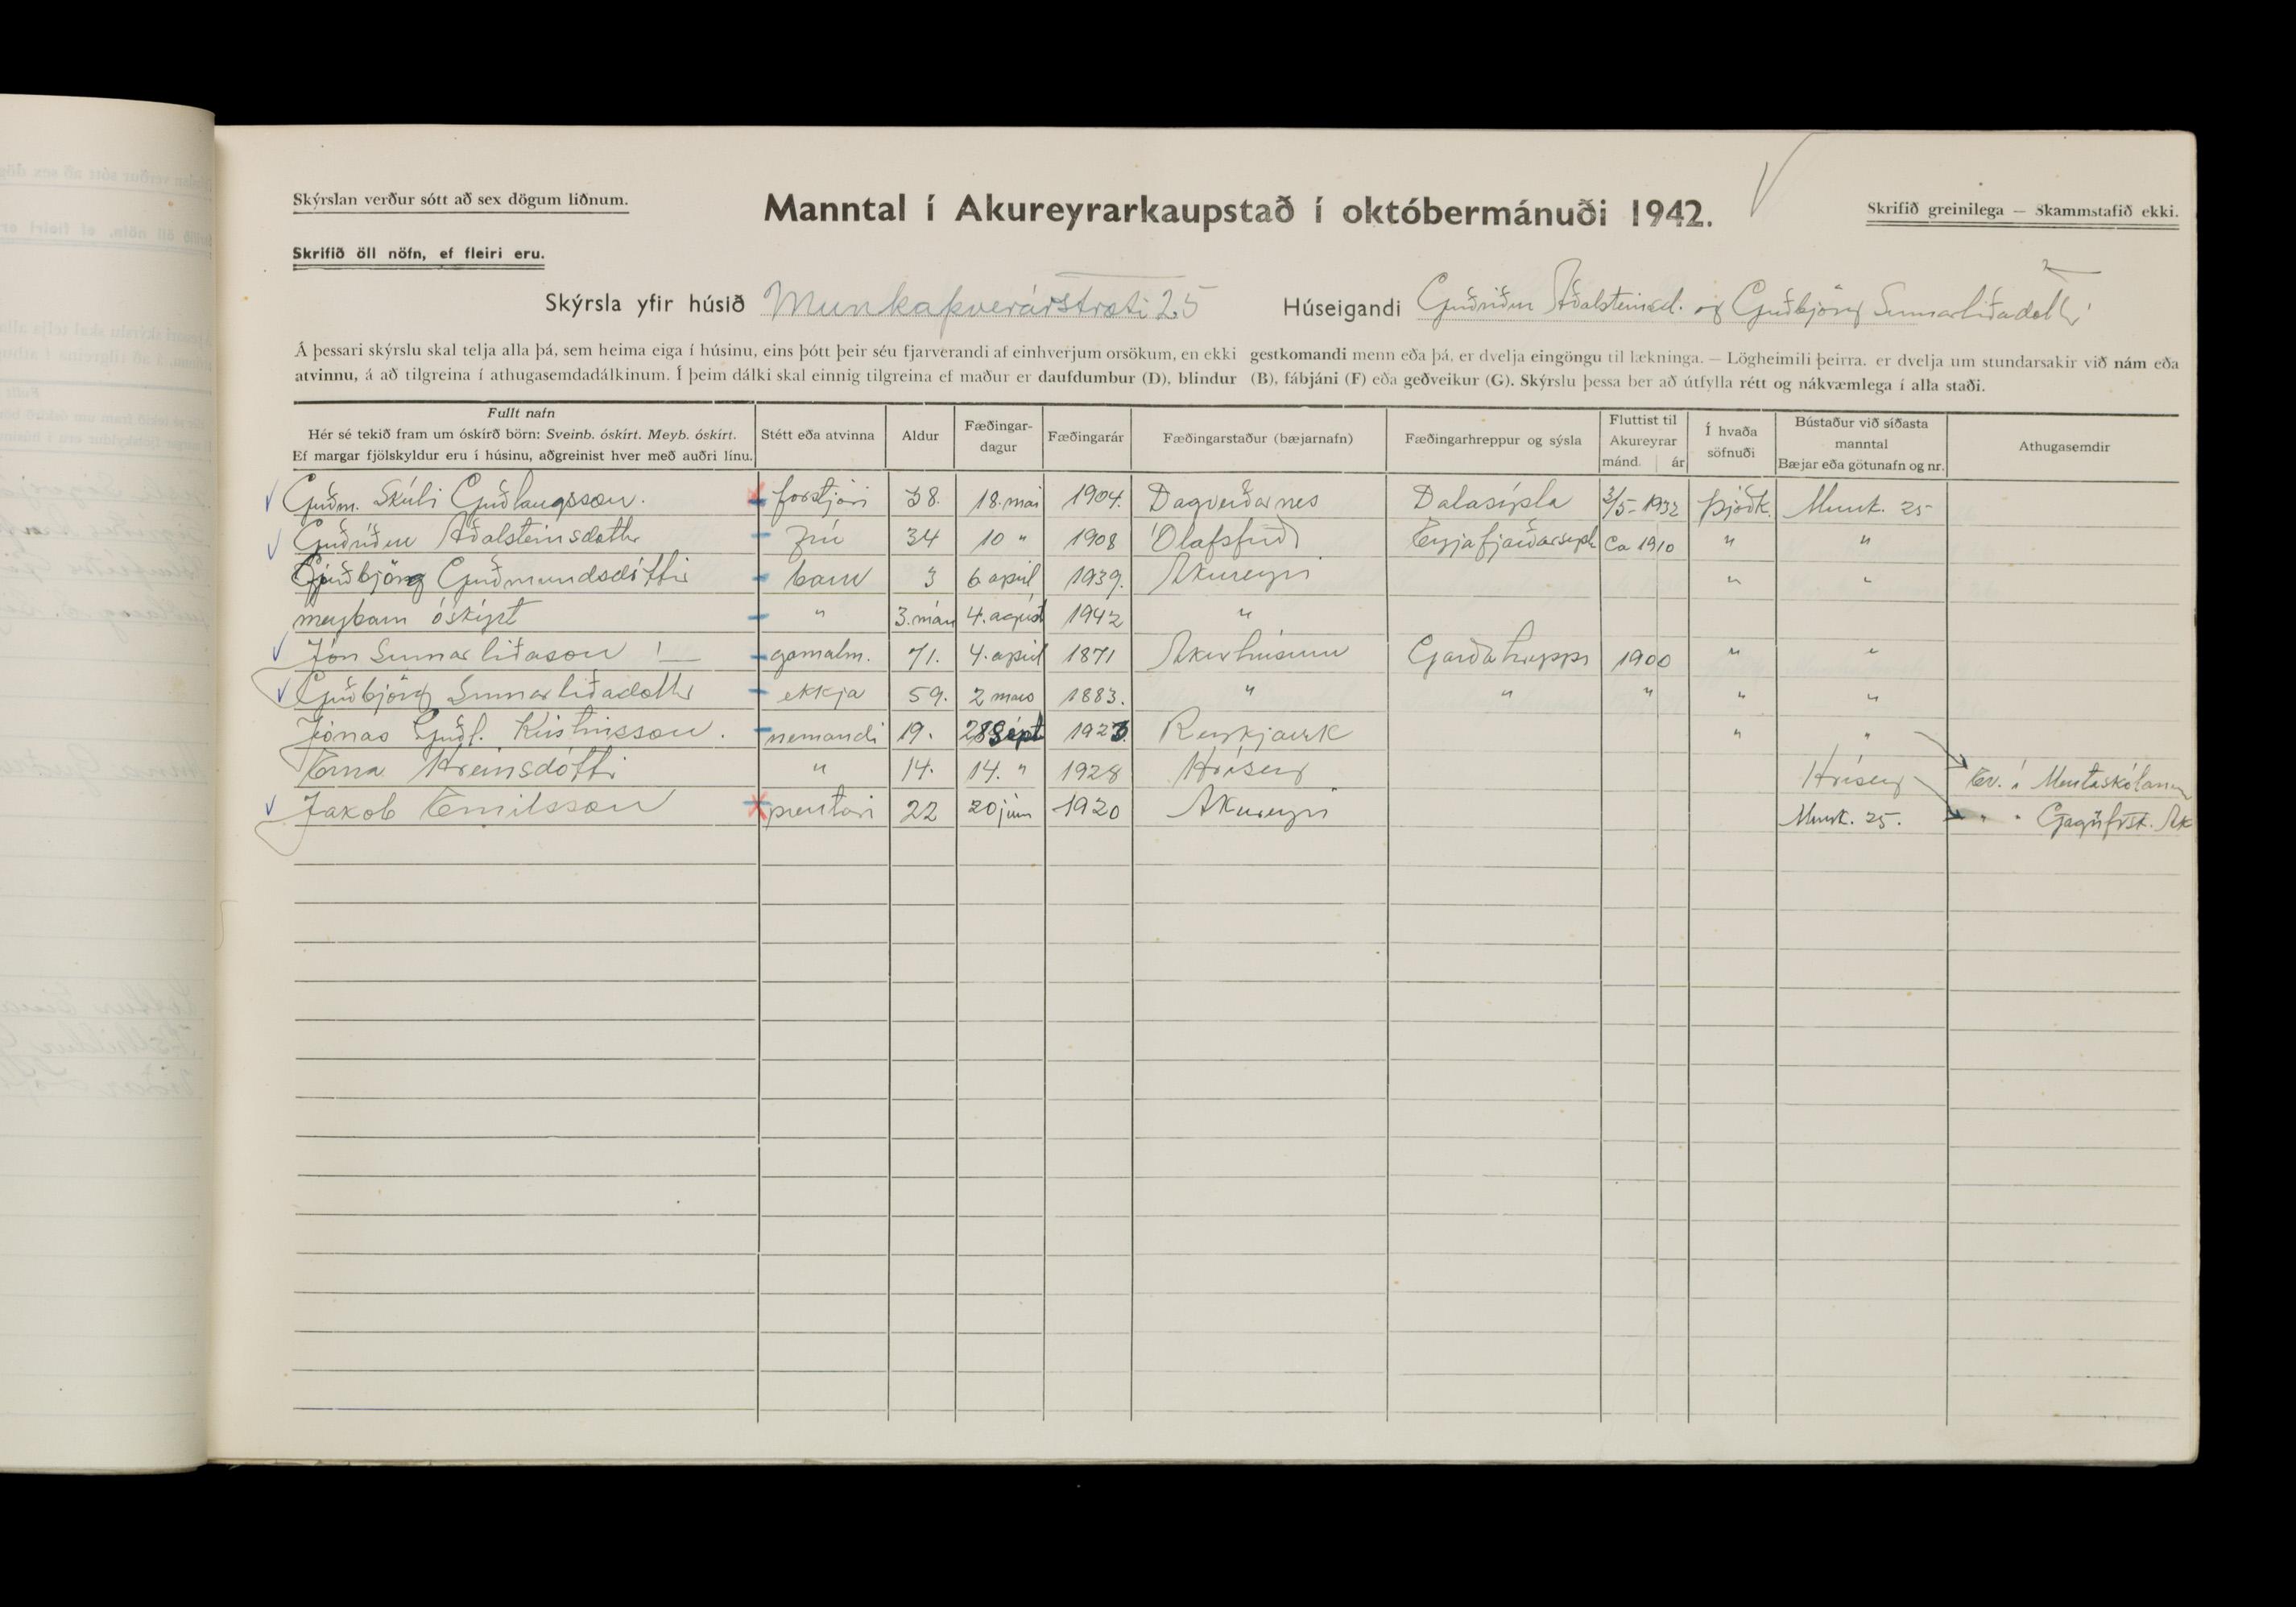 Skýrslan verður sótt að sex dögum liðnum.
Manntal í Akureyrarkaupstað í októbermánuði 1942.
Skrifið greinilega — Skammstafið ekki.
Skrifið öll nöfn, ef fleiri eru.
Skýrsla yfir húsið Munkaþverárstræti 25 Húseigandi Guðríður Aðalsteinsd. og Guðbjörg Sumarliðadóttir
Á þessari skýrslu skal telja alla þá, sem heima eiga í húsinu, eins þótt þeir séu fjarverandi af einhverjum orsökum, en ekki gestkomandi menn eða þá, er dvelja eingöngu til lækninga. — Lögheimili þeirra. er dvelja um stundarsakir við nám eða
atvinnu, á að tilgreina í athugasemdadálkinum. Í þeim dálki skal einnig tilgreina ef maður er daufdumbur (D), blindur (B), fábjáni (F) eða geðveikur (G). Skýrslu þessa ber að útfylla rétt og nákvæmlega í alla staði.
Fullt nafn
Hér sé tekið fram um óskírð börn: Sveinb. óskírt. Meyb. óskírt.
Ef margar fjölskyldur eru í húsinu, aðgreinist hver með auðri línu.
Stétt eða atvinna
Aldur
Fæðingar-
dagur
Fæðingarár
Fæðingarstaður (bæjarnafn)
Fæðingarhreppur og sýsla
Fluttist til
Akureyrar
mánd. ár
Í hvaða
söfnuði
Bústaður við síðasta
manntal
Bæjar eða götunafn og nr.
Athugasemdir
Guðm. Skúli Guðlaugsson. forstjóri 38. 18. maí 1904. Dagverðarnes Dalasýsla 3/5- 1932 Þjóðk. Munk. 25
Guðríður Aðalsteinsdóttir frú 34 10 " 1908 Ólafsfirði Eyjafjarðarsýsl Ca 1910 " "
Guðbjörg Guðmundsdóttir barn 3 6 apríl 1939. Akureyri " "
meybarn óskýrt " 3. mán 4. ágúst 1942 "
Jón Sumarliðason gamalm. 71. 4. apríl 1871 Akurhúsum Garðahreppi 1900 " "
Guðbjörg Sumarliðadóttir ekkja 59. 2 mars 1883. " " " " "
Jónas Guðl. Kristinsson. nemandi 19. 28 Sept 1923. Reykjavík " "
Erna Hreinsdóttir " 14. 14. " 1928 Hrísey Hrísey Er. í Mentaskólanum
Jakob Emilsson prentari 22 20 júní 1920 Akureyri Munk. 25. " " Gagnfrsk. Ak